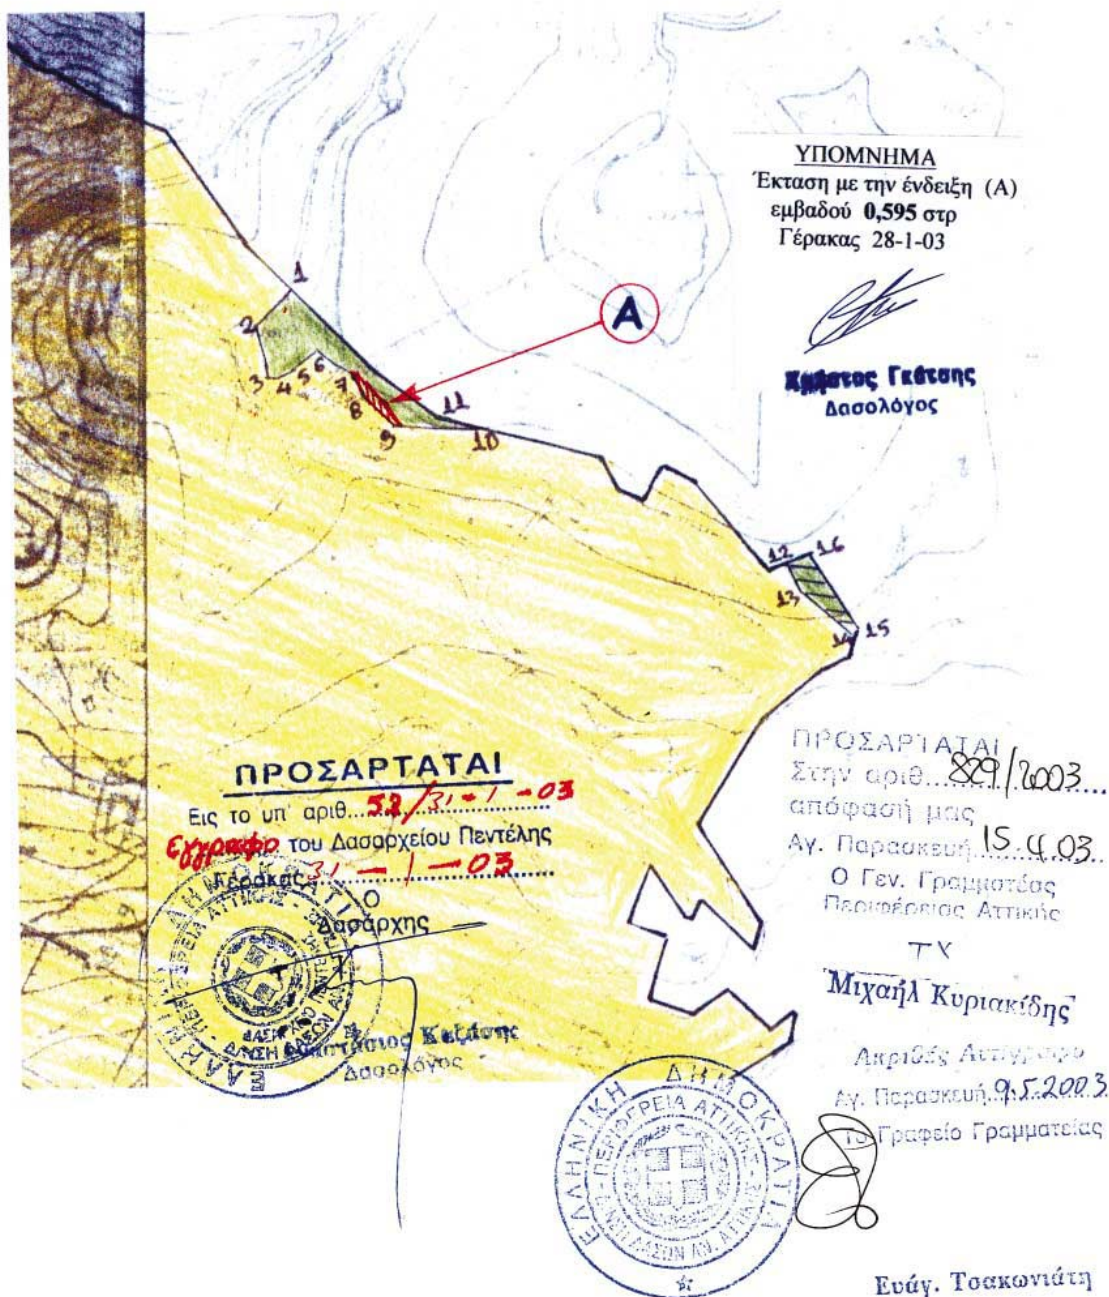 ΥΠΟΜΝΗΜΑ
Έκταση με την ένδειξη (Α)
εμβαδού 0,595 στρ
Γέρακας 28-1-03
Γκάτσης
Δασολόγος
A
1
2
3
4
5
6
7
8
9
10
11
12
13
14
15
16
ΠΡΟΣΑΡΤΑΤΑΙ
Εις το υπ' αριθ. 52/31-1-03
Εγγραφο του Δασαρχείου Πεντέλης
Γέρακας 31-1-03
Ο
Δασάρχης
Καζάσης
Δασολόγος
ΠΡΟΣΑΡΤΑΤΑΙ
Στην αριθ. 829/2003
απόφασή μας
Αγ. Παρασκευή 15.4.03
Ο Γεν. Γραμματέας
Περιφέρειας Αττικής
Μιχαήλ Κυριακίδης
Ακριβές Αντίγραφο
Αγ. Παρασκευή 9.5.2003
Το Γραφείο Γραμματείας
ΕΛΛΗΝΙΚΗ ΔΗΜΟΚΡΑΤΙΑ
ΠΕΡΙΦΕΡΕΙΑ ΑΤΤΙΚΗΣ
Ευάγ. Τσακωνιάτη